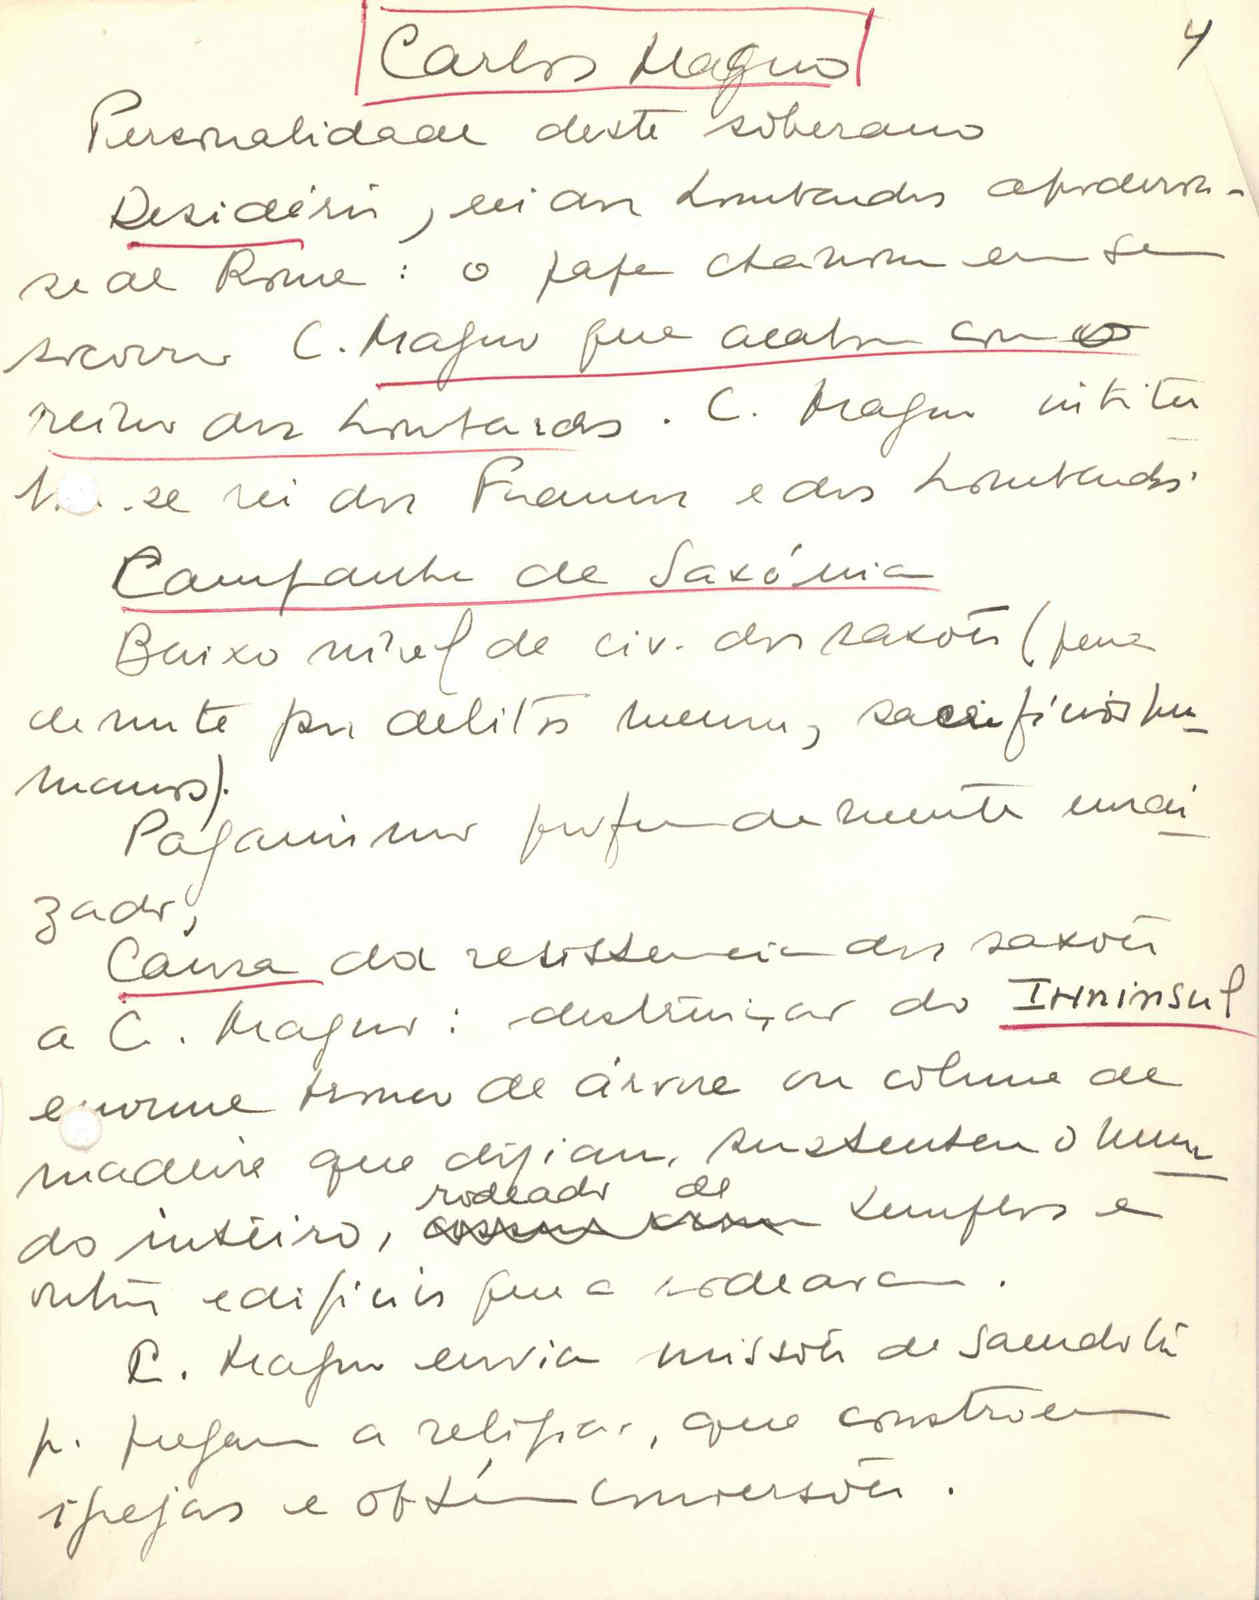 4
Carlos Magno
Personalidade deste soberano
Desidério, rei dos Lombardos apoderou-
se de Roma: o papa chamou em seu
socorro C. Magno que acabou com o
reino dos Lombardos. C. Magno intitu
l -se rei dos Francos e dos Lombardos.
Campanha de Saxónia
Baixo nível de civ. dos saxões (pena
de morte por delitos menores, sacrifícios hu-
manos).
Paganismo profundamente enrai-
zado,
Causa da resistencia dos saxões
a C. Magno: destruição do Irminsul
enorme tronco de árvore ou coluna de
madeira que diziam, sustentar o mun-
do inteiro, rodeado de templos e
outros edifícios que a rodeavam.
C. Magno envia missões de sacerdotes
p. pregarem a religião, que constroem
igrejas e obtém conversões.